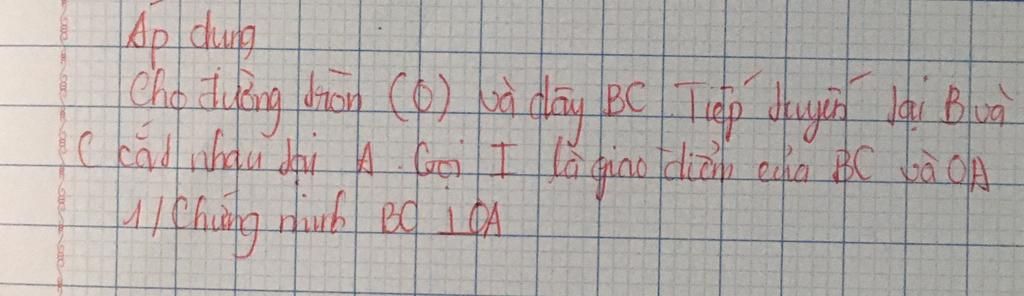 Áp dụng
Cho đường tròn (O) và dây BC. Tiếp tuyến tại B và
C cắt nhau tại A. Gọi I là giao điểm của BC và OA
1/ Chứng minh BC ⊥ OA